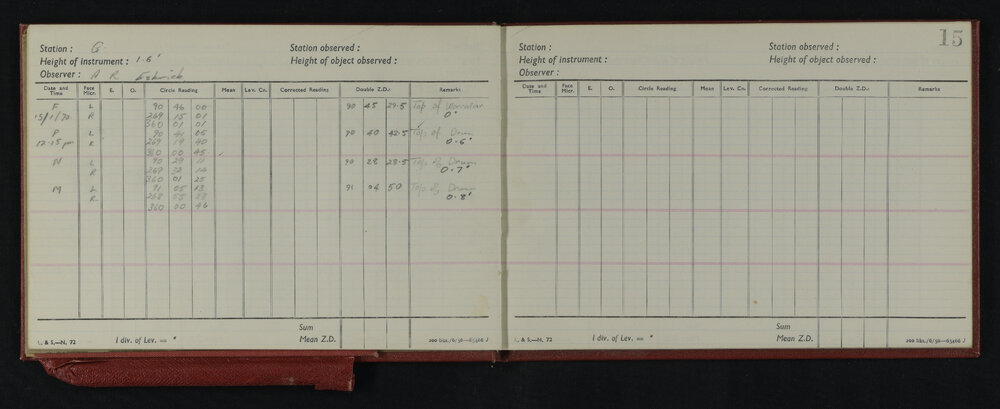 Station : G.
Height of instrument : 1.6'
Observer : A R
Station observed :
Height of object observed :
Date and Time Face Micr. E. O. Circle Reading Mean Lev. Cn. Corrected Reading Double Z.D.: Remarks
F L 90 46 00 90 45 29.5 Top of
15/1/70 R 269 15 01 0"
360 01 01
P L 90 41 05 90 40 42.5 Top of Drum
12.15 pm R 269 19 40 0.6'
360 00 45
N L 90 29 11 90 28 28.5 Top of Drum
R 269 32 14 0.7'
360 01 25
M L 91 05 13 91 04 50 Top of Drum
R 268 55 33 0.8'
360 00 46
Sum
L. & S.—N. 72 1 div. of Lev. = " Mean Z.D. 200 bks./6/50—65466 J
15
Station :
Height of instrument :
Observer :
Station observed :
Height of object observed :
Date and Time Face Micr. E. O. Circle Reading Mean Lev. Cn. Corrected Reading Double Z.D.: Remarks
Sum
L. & S.—N. 72 1 div. of Lev. = " Mean Z.D. 200 bks./6/50—65466 J